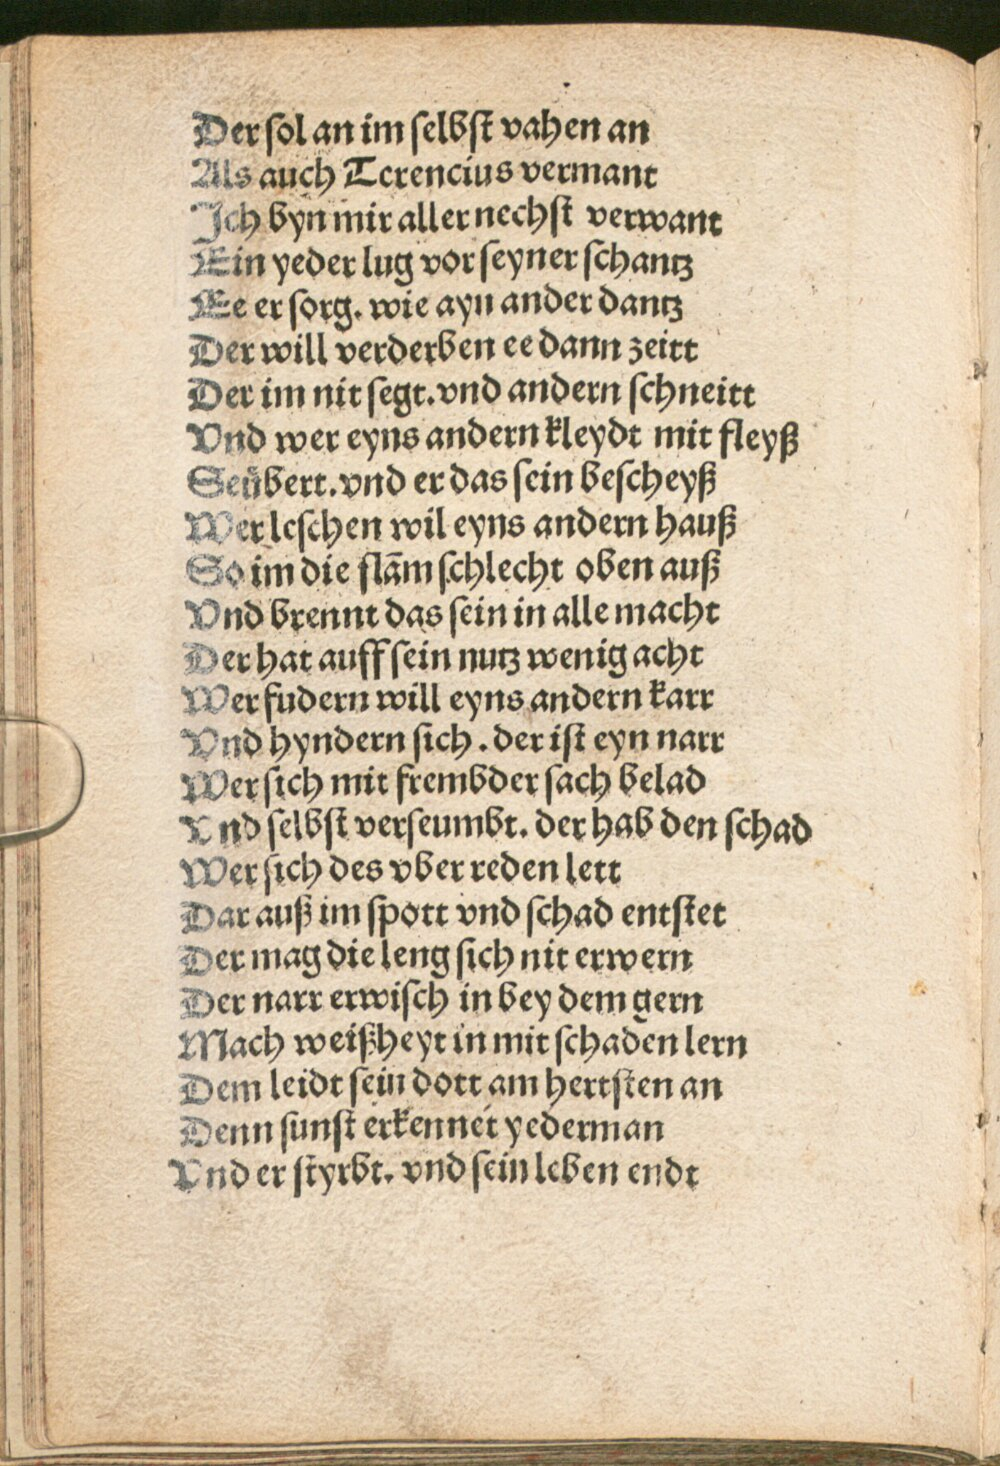 Der sol an im selbst vahen an
Als auch Terencius vermant
Ich byn mir aller nechst verwant
Ein yeder lug vor seyner schantz
Ee er sorg. wie ayn ander dantz
Der will verderben ee dann zeitt
Der im nit segt. vnd andern schneitt
Vnd wer eyns andern kleydt mit fleyß
Seübert. vnd er das sein bescheyß
Wer leschen wil eyns andern hauß
So im die flām schlecht oben auß
Vnd brennt das sein in alle macht
Der hat auff sein nutz wenig acht
Wer fudern will eyns andern karr
Vnd hyndern sich. der ist eyn narr
Wer sich mit frembder sach belad
Vnd selbst verseumbt. der hab den schad
Wer sich des vber reden lett
Dar auß im spott vnd schad entstet
Der mag die leng sich nit erwern
Der narr erwisch in bey dem gern
Mach weißheyt in mit schaden lern
Dem leidt sein dott am hertsten an
Denn sunst erkennet yederman
Vnd er styrbt. vnd sein leben endt